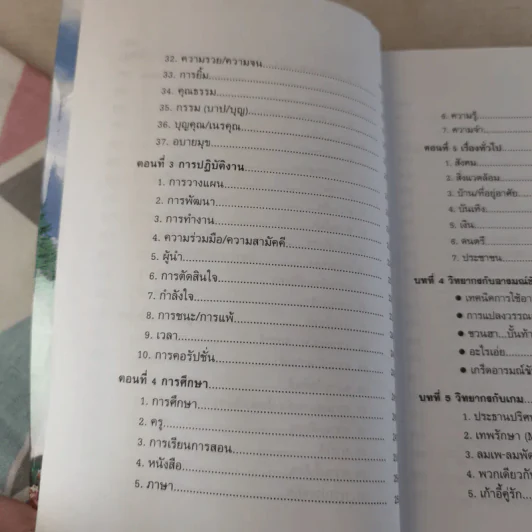 32. ความรวย/ความจน
33. การยิ้ม
34. คุณธรรม
35. กรรม (บาป/บุญ)
36. บุญคุณ/เนรคุณ
37. อบายมุข
ตอนที่ 3 การปฏิบัติงาน
1. การวางแผน
2. การพัฒนา
3. การทำงาน
4. ความร่วมมือ/ความสามัคคี
5. ผู้นำ
6. การตัดสินใจ
7. กำลังใจ
8. การชนะ/การแพ้
9. เวลา
10. การคอรัปชั่น
ตอนที่ 4 การศึกษา
1. การศึกษา
2. ครู
3. การเรียนการสอน
4. หนังสือ
5. ภาษา
6. ความรู้
7. ความจำ
ตอนที่ 5 เรื่องทั่วไป
1. สังคม
2. สิ่งแวดล้อม
3. บ้าน/ที่อยู่อาศัย
4. บันเทิง
5. เงิน
6. ดนตรี
7. ประชาชน
บทที่ 4 วิทยากรกับอารมณ์ขัน
● เทคนิคการใช้อา
● การแปลงวรรณ
● ชวนฮา...ปั้นทำ
● อะไรเอ่ย
● เกร็ดอารมณ์ขั
บทที่ 5 วิทยากรกับเกม
1. ประธานปริศ
2. เทพรักษา (M
3. ลมเพ-ลมพัด
4. พวกเดียวกัน
5. เก้าอี้คู่รัก